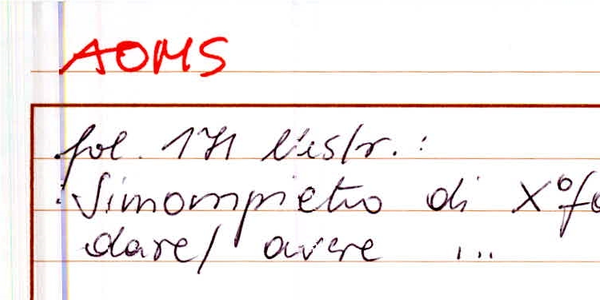 AOMS
fol. 171 l'estr.:
Simompietro di X°fo
dare/ avere ...